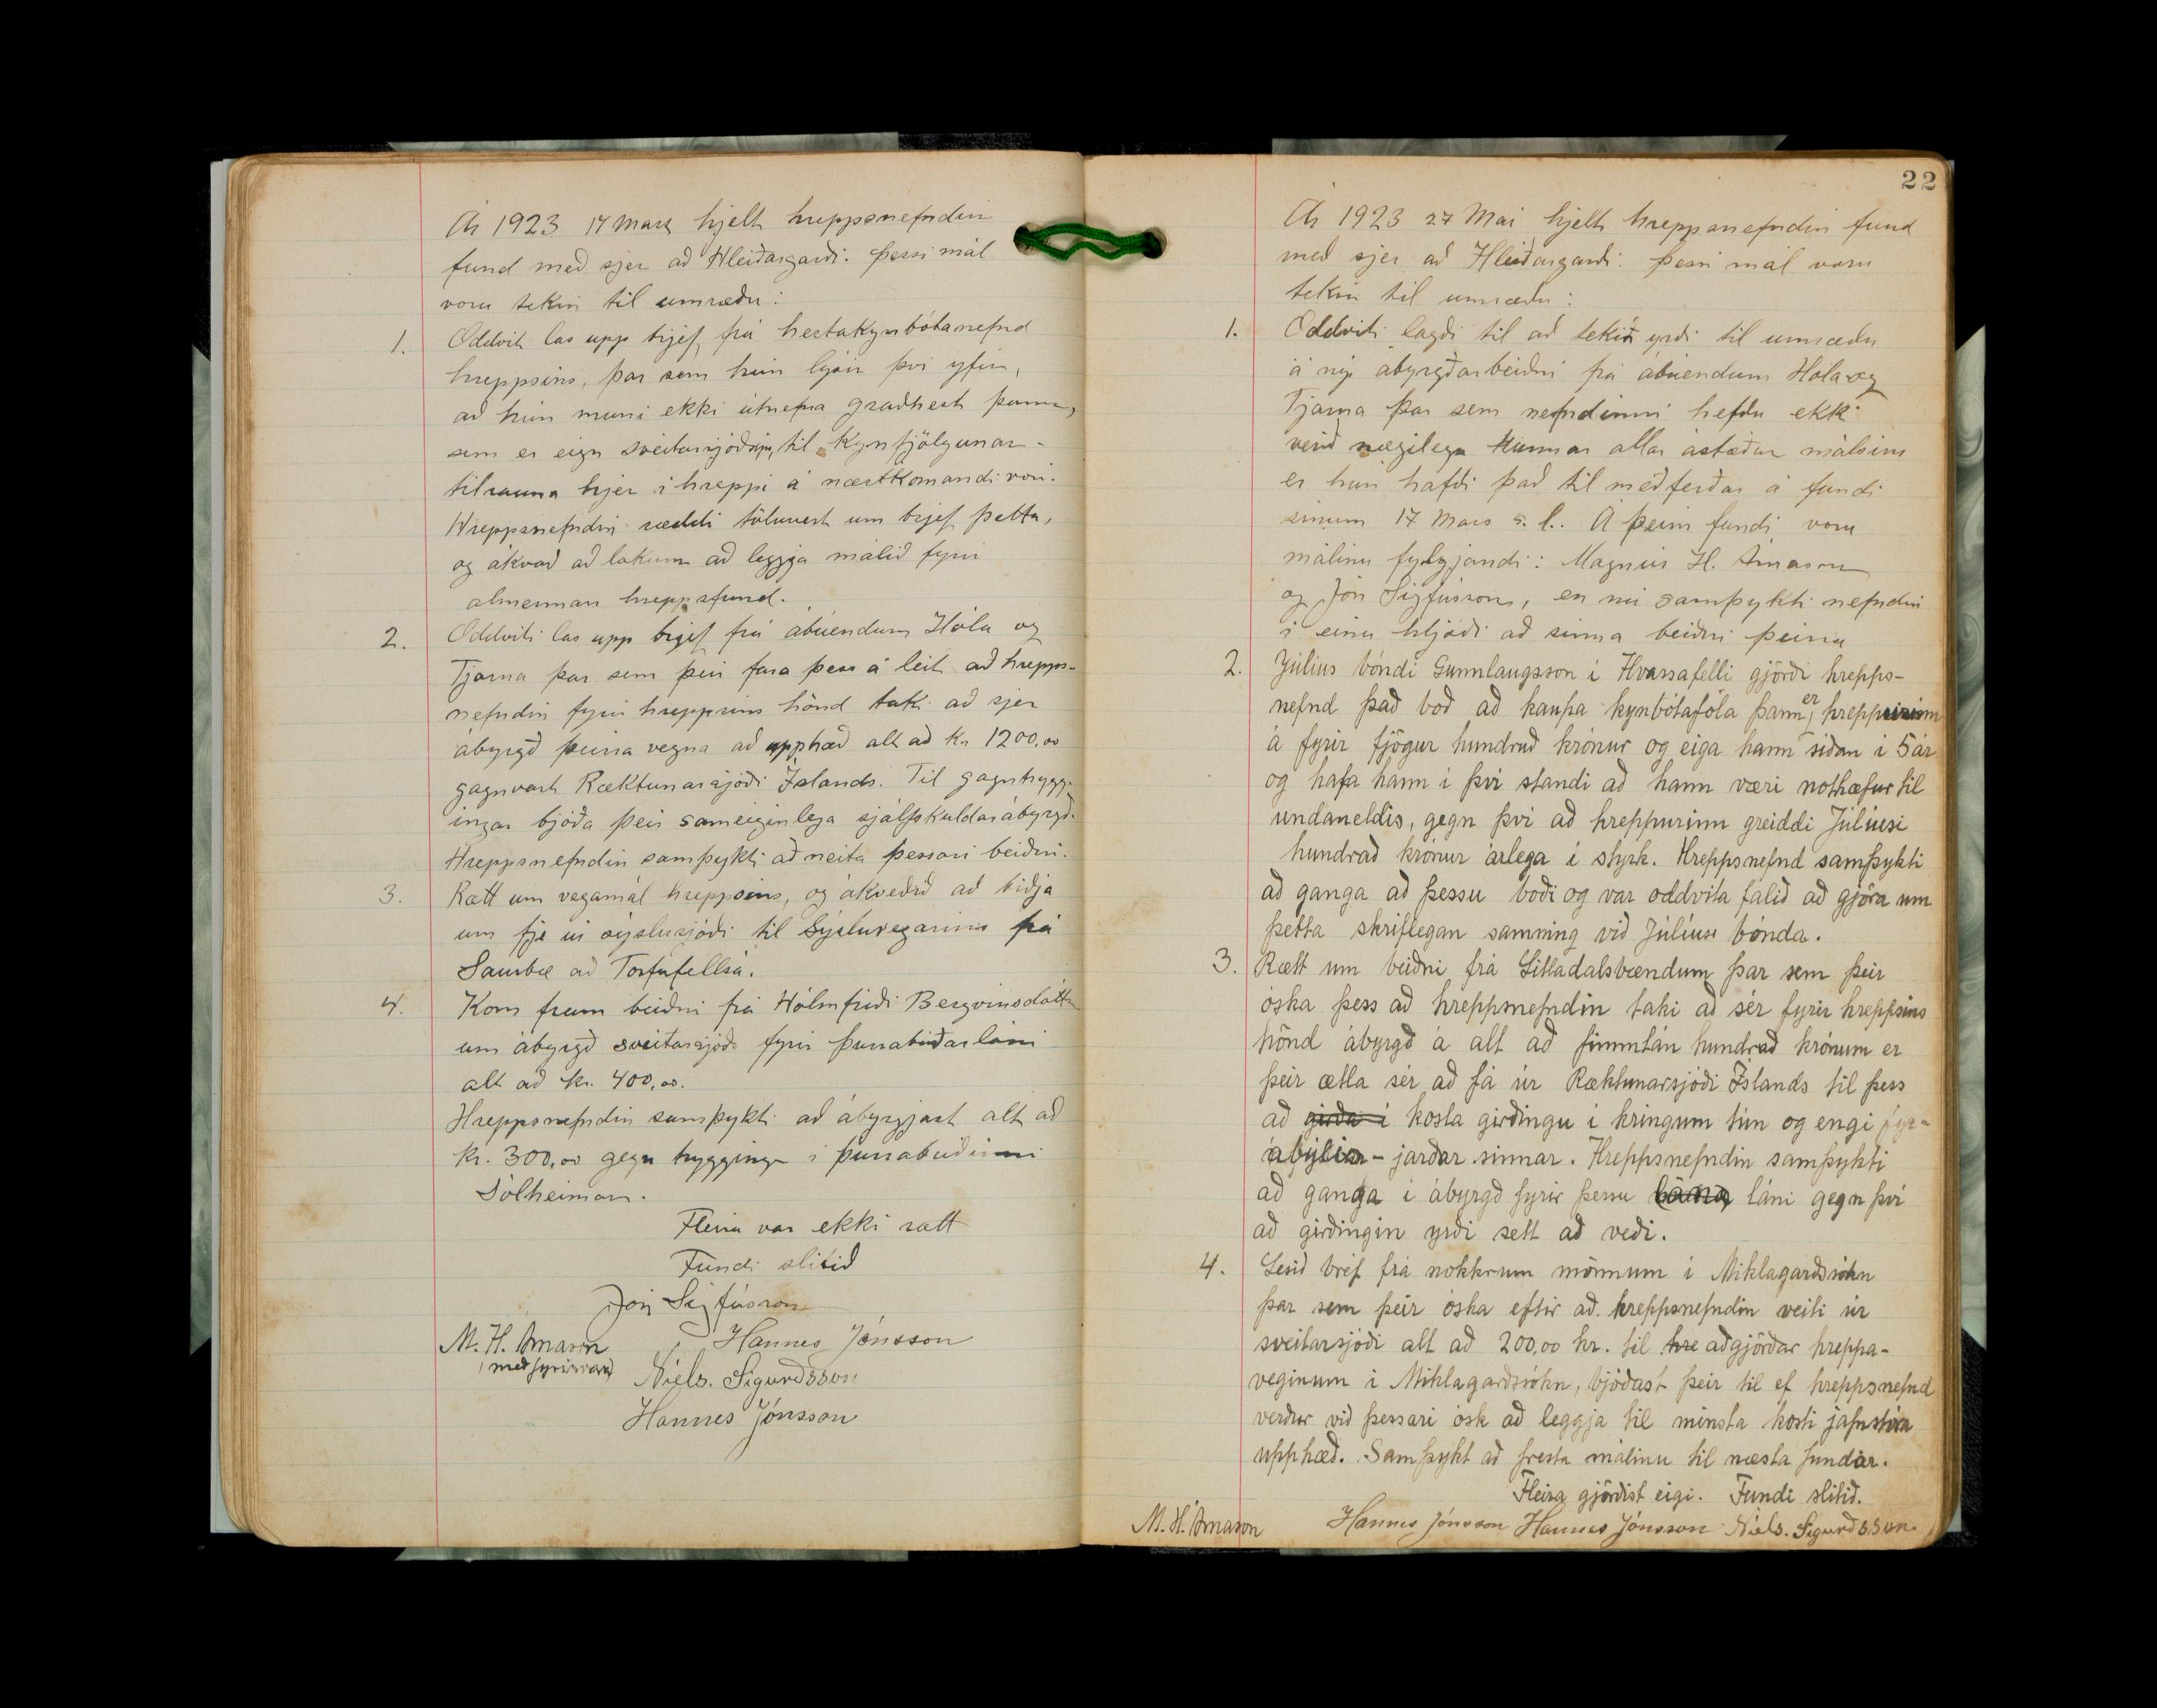 Ár 1923 17 Mars hjelt hreppsnefndin
fund með sjer að Hleiðargarði. Þessi mál
voru tekin til umræðu:
1. Oddviti las upp brjef frá hestakynbótanefnd
hreppsins, þar sem hún lýsir því yfir,
að hún muni ekki útnefna graðhest þann,
sem er eign sveitarsjóðsins, til kynfjölgunar-
tilrauna hjer í hreppi á næstkomandi vori.
Hreppsnefndin ræddi töluvert um brjef þetta,
og ákvað að lokum að leggja málið fyrir
almennan hreppsfund.
2. Oddviti las upp brjef frá ábúendum Hóla og
Tjarna þar sem þeir fara þess á leit að hrepps-
nefndin fyrir hreppsins hönd taki að sjer
ábyrgð þeirra vegna að upphæð alt að kr 1200,00
gagnvart Ræktunarsjóði Íslands. Til gagntrygg-
ingar bjóða þeir sameiginlega sjálfskuldarábyrgð.
Hreppsnefndin samþykti að neita þessari beiðni.
3. Rætt um vegamál hreppsins, og ákveðið að biðja
um fje úr sýslusjóði til Sýsluvegarins frá
Saurbæ að Torfufellsá.
4. Kom fram beiðni frá Hólmfríði Bergvinsdóttur
um ábyrgð sveitarsjóðs fyrir þurrabúðarláni
alt að kr. 400,00.
Hreppsnefndin samþykti að ábyrgjast alt að
kr. 300,00 gegn tryggingu í þurrabúðinni
Sólheimar.
Fleira var ekki rætt
Fundi slitið
Jón Sigfússon
M. H. Árnason Hannes Jónsson
með fyrirvara Níels. Sigurðsson
Hannes Jónsson
22
Ár 1923 27 Maí hjelt hreppsnefndin fund
með sjer að Hleiðargarði. Þessi mál voru
tekin til umræðu:
1. Oddviti lagði til að tekin yrði til umræðu
á ný ábyrgðarbeiðni frá ábúendum Hóla og
Tjarna þar sem nefndinni hefðu ekki
verið nægilega kunnar allar ástæður málsins
er hún hafði það til meðferðar á fundi
sínum 17 Mars s. l.. Á þeim fundi voru
málinu fylgjandi: Magnús H. Árnason
og Jón Sigfússon, en nú samþykti nefndin
í einu hljóði að sinna beiðni þeirra
2. Júlíus bóndi Gunnlaugsson í Hvassafelli gjörði hrepps-
nefnd það boð að kaupa kynbótafola þann er hreppurinn
á fyrir fjögur hundruð krónur og eiga hann síðan í 5 ár
og hafa hann í því standi að hann væri nothæfur til
undaneldis, gegn því að hreppurinn greiddi Júlíusi
hundrað krónur árlega í styrk. Hreppsnefnd samþykti
að ganga að þessu boði og var oddvita falið að gjöra um
þetta skriflegan samning við Júlíus bónda.
3. Rætt um beiðni frá Litladalsbændum þar sem þeir
óska þess að hreppsnefndin taki að sér fyrir hreppsins
hönd ábyrgð á alt að fimmtán hundrað krónum er
þeir ætla sér að fá úr Ræktunarsjóði Íslands til þess
að girða í kosta girðingu í kringum tún og engi
ábýlis-jarðar sinnar. Hreppsnefndin samþykti
að ganga í ábyrgð fyrir þessu láni gegn því
að girðingin yrði sett að veði.
4. Lesið bréf frá nokkrum mönnum í Miklagarðssókn
þar sem þeir óska eftir að hreppsnefndin veiti úr
sveitarsjóði alt að 200,00 kr. til hre aðgjörðar hreppa-
veginum í Miklagarðssókn, bjóðast þeir til ef hreppsnefnd
verður við þessari ósk að leggja til minsta kosti jafnstóra
upphæð. Samþykt að fresta málinu til næsta fundar.
Fleira gjörðist eigi. Fundi slitið.
M. H. Árnason Hannes Jónsson Hannes Jónsson Níels. Sigurðsson.